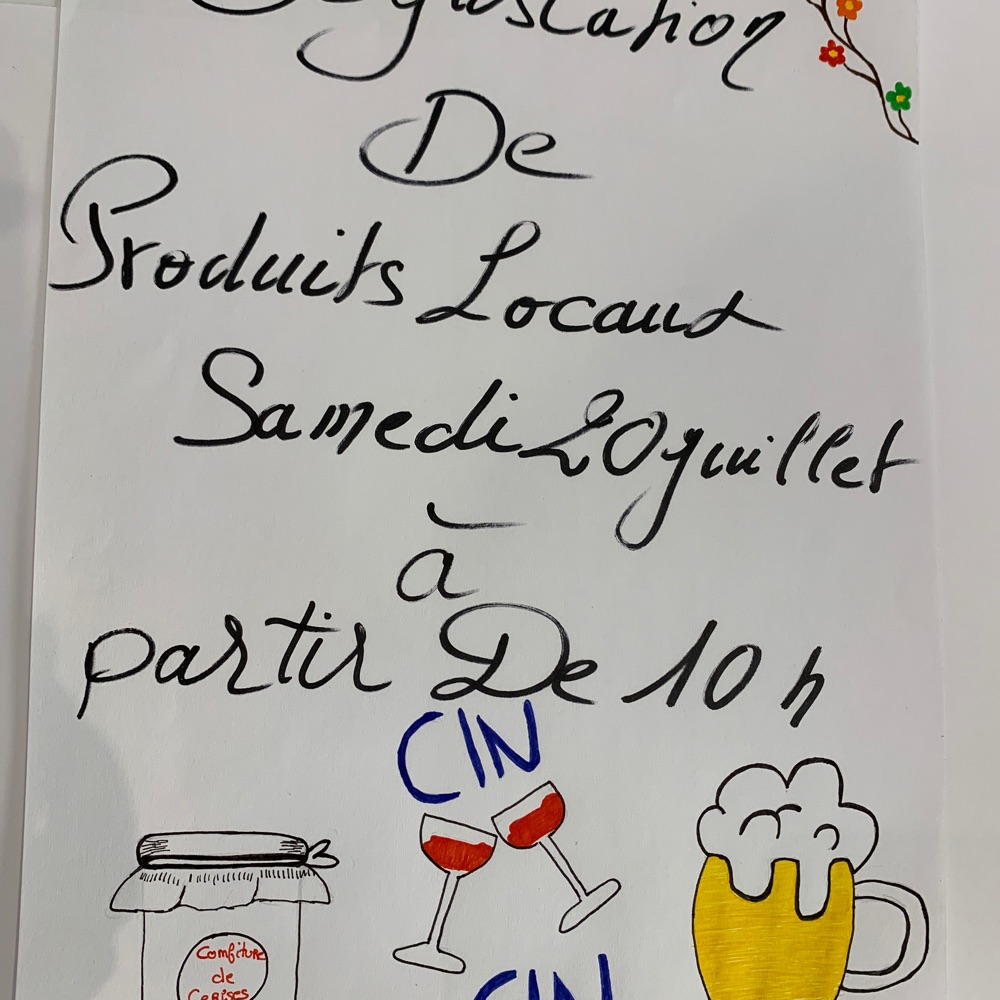 Dégustation
De
Produits Locaux
Samedi 20 juillet
à
partir De 10 h
CIN
Confiture
de
Cerises
CIN